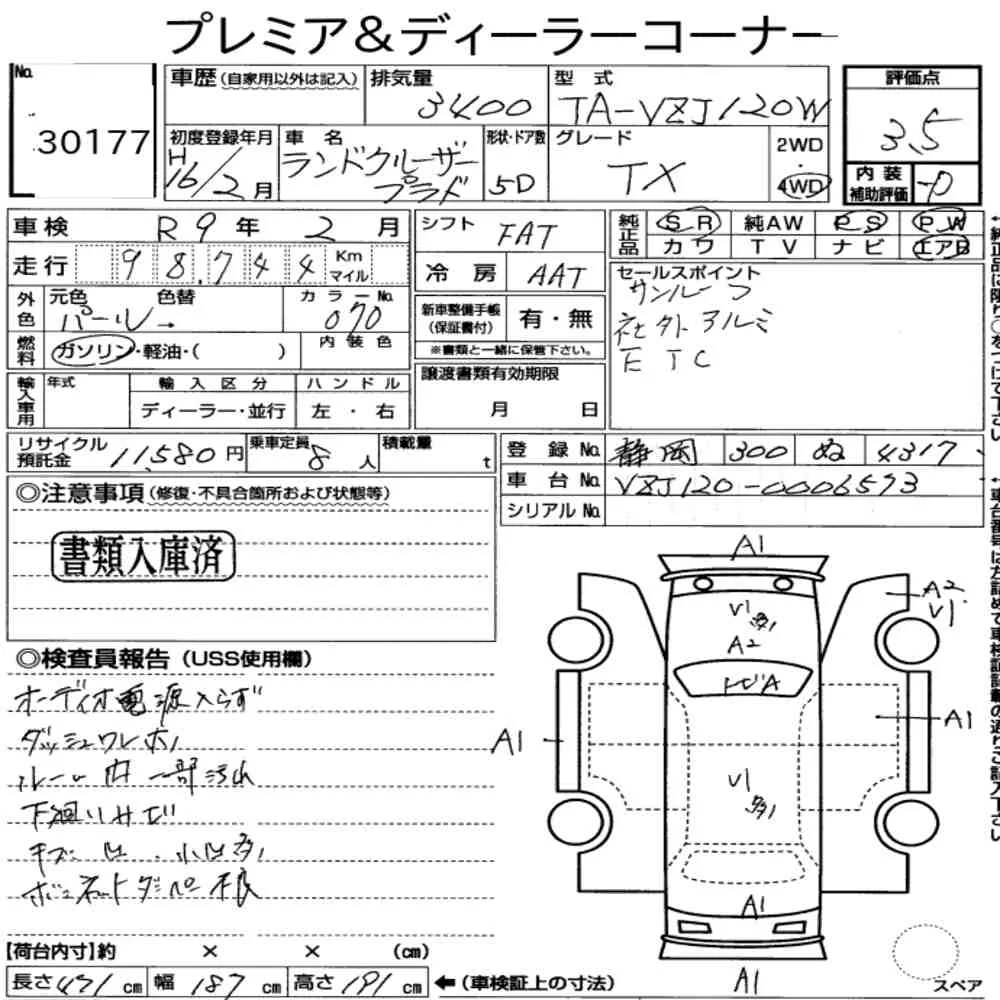 プレミア&ディーラーコーナー
No. 30177
車歴(自家用以外は記入)
排気量 3400
型式 TA-VZJ120W
評価点 3.5
初度登録年月 H16/2月
車名 ランドクルーザープラド
形状・ドア数 5D
グレード TX
2WD
4WD
内装補助評価
車検 R9年 2月
シフト FAT
純正品 SR 純AW PS PW
カワ TV ナビ エアB
走行 98,744 Km マイル
冷房 AAT
セールスポイント
サンルーフ
社外アルミ
ETC
外色 元色 色替 カラーNo.
パール→ 070
新車整備手帳(保証書付) 有・無
※書類と一緒に保管下さい。
燃料 ガソリン・軽油・( ) 内装色
譲渡書類有効期限
月 日
輸入車用 年式 輸入区分 ハンドル
ディーラー・並行 左・右
リサイクル預託金 11,580円
乗車定員 8人
積載量 t
登録No. 静岡 300 ぬ 4317
車台No. VZJ120-0006573
シリアルNo.
◎注意事項(修復・不具合箇所および状態等)
書類入庫済
◎検査員報告(USS使用欄)
オーディオ電源入らず
ダッシュワレ ホノ
ルーム内一部汚れ
下廻りサビ
キズ・凹・小凹多
ボンネットダンパー不良
A1
V1
A2
A2
V1
トビA
A1
A1
V1
A1
A1
スペア
【荷台内寸】約 × × (cm)
長さ 471 cm 幅 187 cm 高さ 191 cm ←(車検証上の寸法)